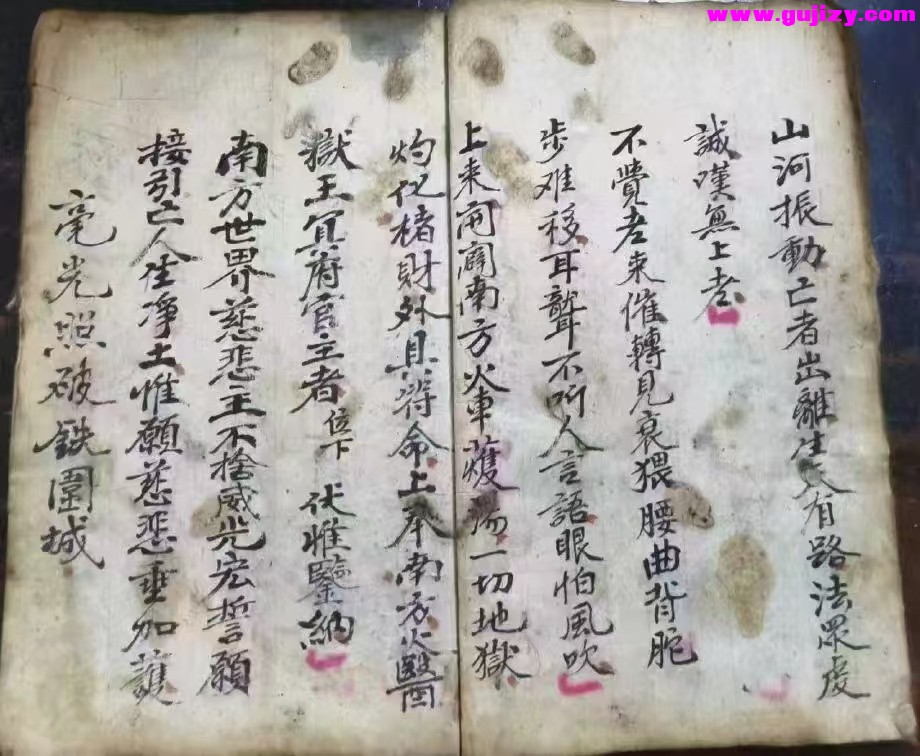 www.gujizy.com
山河振動亡者出離生天有路法眾虔
誠嘆無上老
不覺老來催轉見衰猥腰曲背駝
步难移耳聾不听人言語眼怕風吹
上来開闢南方火車鑊湯一切地獄
灼化楮財外具符命上奉南方火醫
獄王冥府官主者位下 伏惟鑒納
南方世界慈悲主不捨威光宏誓願
接引亡人生净土惟願慈悲垂加護
毫光照破鉄圍城